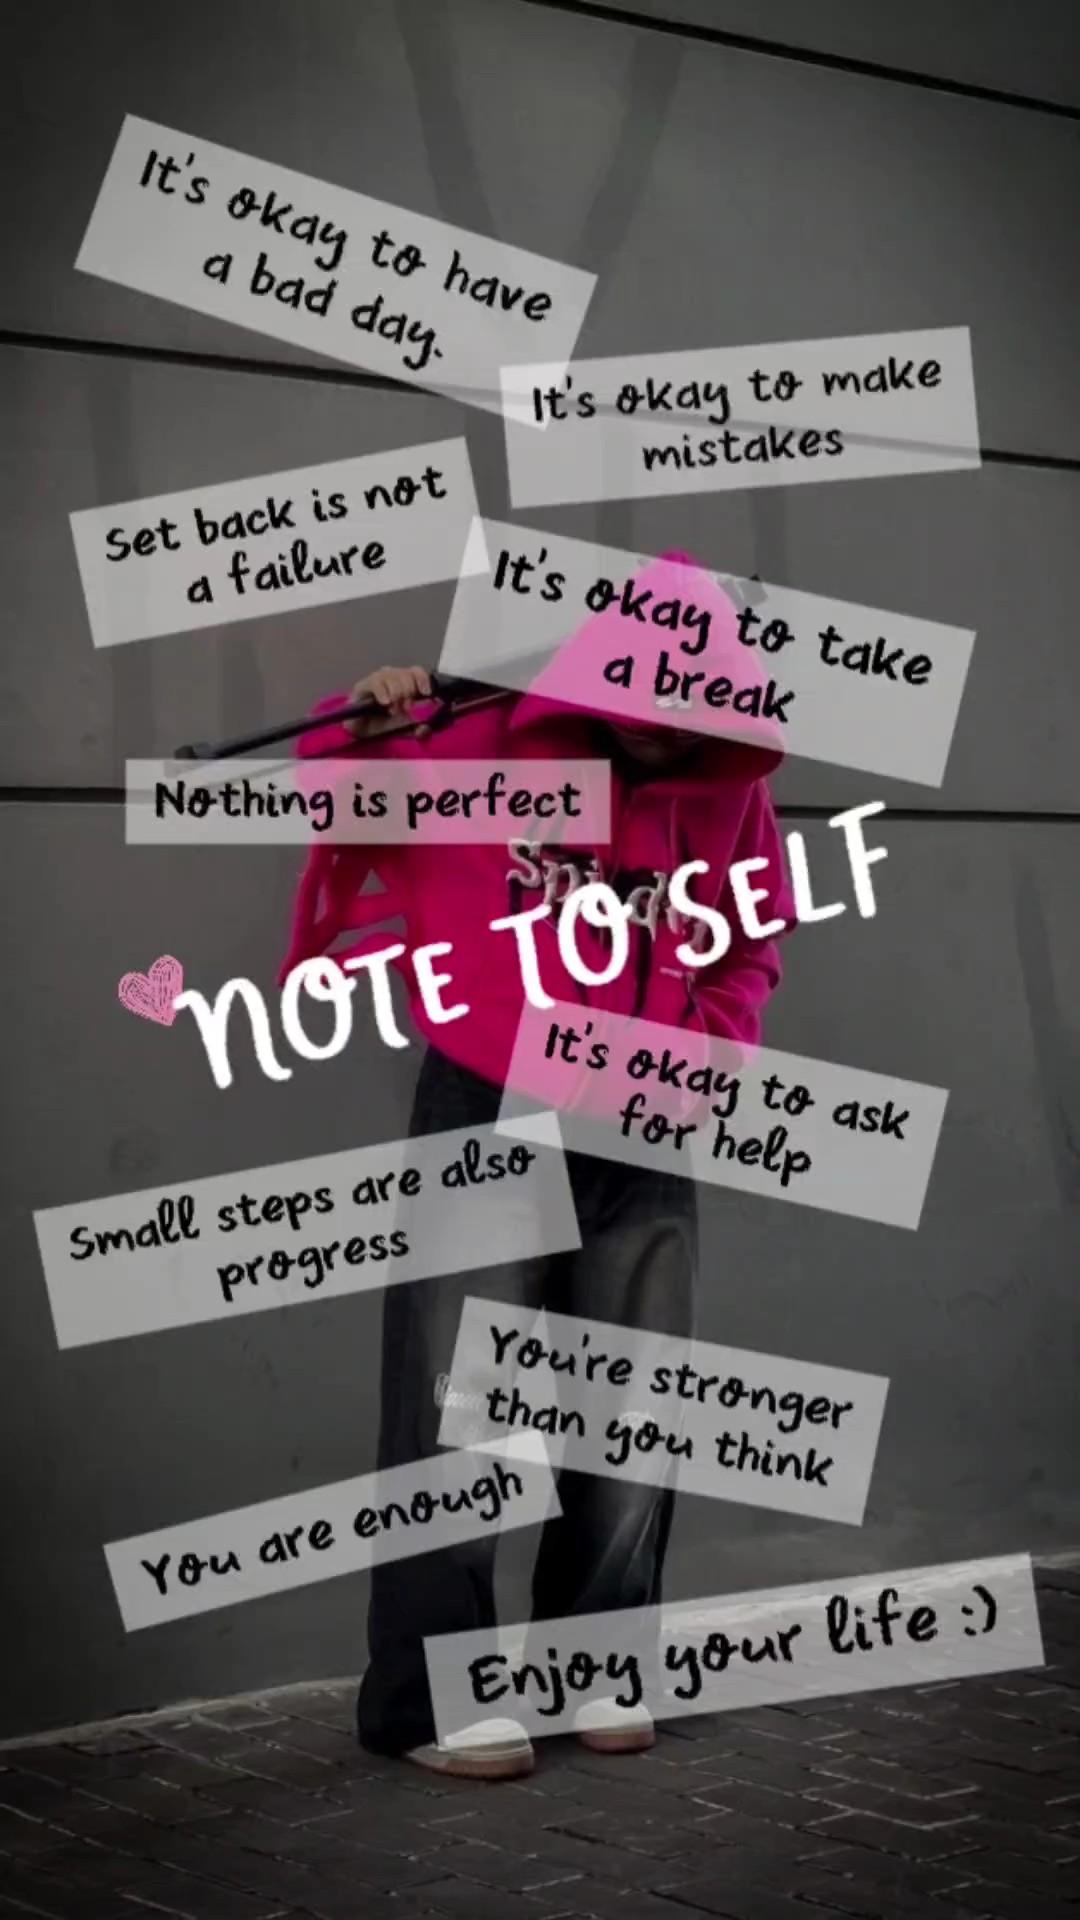 It's okay to have
a bad day.
It's okay to make
mistakes
Set back is not
a failure
It's okay to take
a break
Nothing is perfect
NOTE TO SELF
It's okay to ask
for help
Small steps are also
progress
You're stronger
than you think
You are enough
Enjoy your life :)